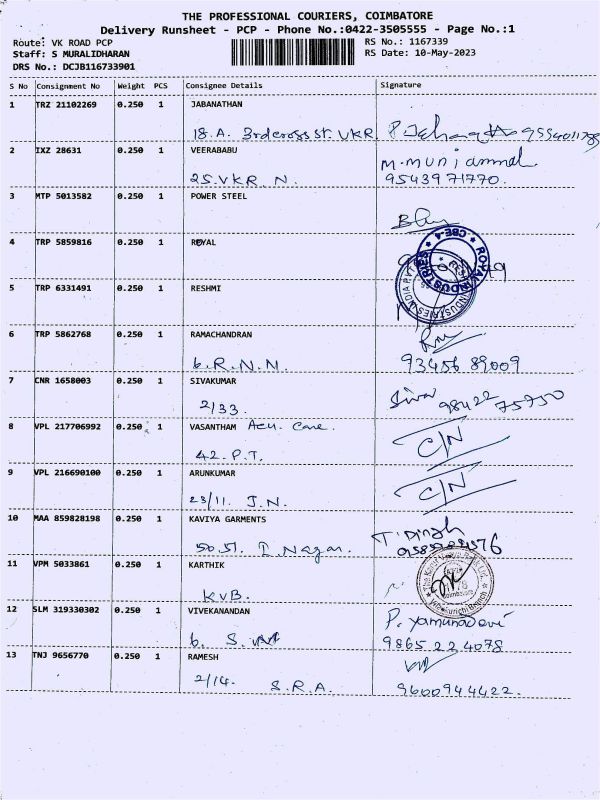 THE PROFESSIONAL COURIERS, COIMBATORE
Delivery Runsheet - PCP - Phone No.:0422-3505555 - Page No.:1
Route: VK ROAD PCP RS No.: 1167339
Staff: S MURALIDHARAN RS Date: 10-May-2023
DRS No.: DCJB116733901
S No Consignment No Weight PCS Consignee Details Signature
1 TRZ 21102269 0.250 1 JABANATHAN
18.A. 3rdcross st. VKR
2 IXZ 28631 0.250 1 VEERABABU M.muniammal
25.VKR.N. 9543971770.
3 MTP 5013582 0.250 1 POWER STEEL
4 TRP 5859816 0.250 1 ROYAL
ROYAL INDUSTRIES CBE-4
5 TRP 6331491 0.250 1 RESHMI
6 TRP 5862768 0.250 1 RAMACHANDRAN
6.R.N.N. 93456 89009
7 CNR 1658003 0.250 1 SIVAKUMAR
2/33. Siva 98422 75750
8 VPL 217706992 0.250 1 VASANTHAM Acu. Care. C/N
42.P.T.
9 VPL 216690100 0.250 1 ARUNKUMAR C/N
23/11 J.N.
10 MAA 859828198 0.250 1 KAVIYA GARMENTS
Nagar.
11 VPM 5033861 0.250 1 KARTHIK
KVB.
12 SLM 319330302 0.250 1 VIVEKANANDAN P. Yamunadevi
6. 9865224078
13 TNJ 9656770 0.250 1 RAMESH
2/14. S.R.A. 9600944422.